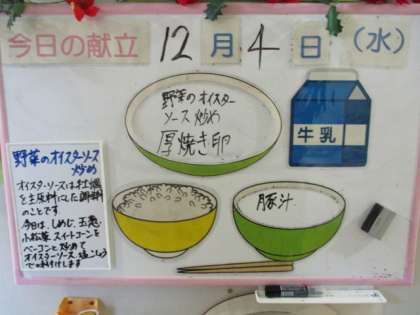 今日の献立 12月4日(水)
野菜のオイスター
ソース炒め
厚焼き卵
牛乳
豚汁
野菜のオイスターソース
炒め
オイスターソースは牡蠣
を主原料にした調味料
のことです。
今日は、しめじ、玉葱、
小松菜、スイートコーンを
ベーコンと炒めて
オイスターソース、塩こしょう
で味付けします